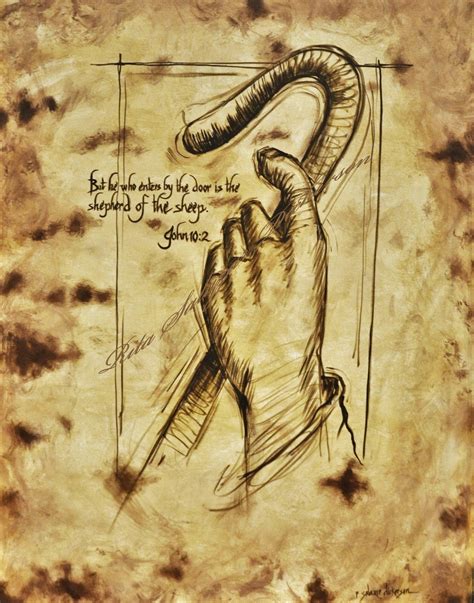 But he who enters by the door is the
shepherd of the sheep.
John 10:2
Rita